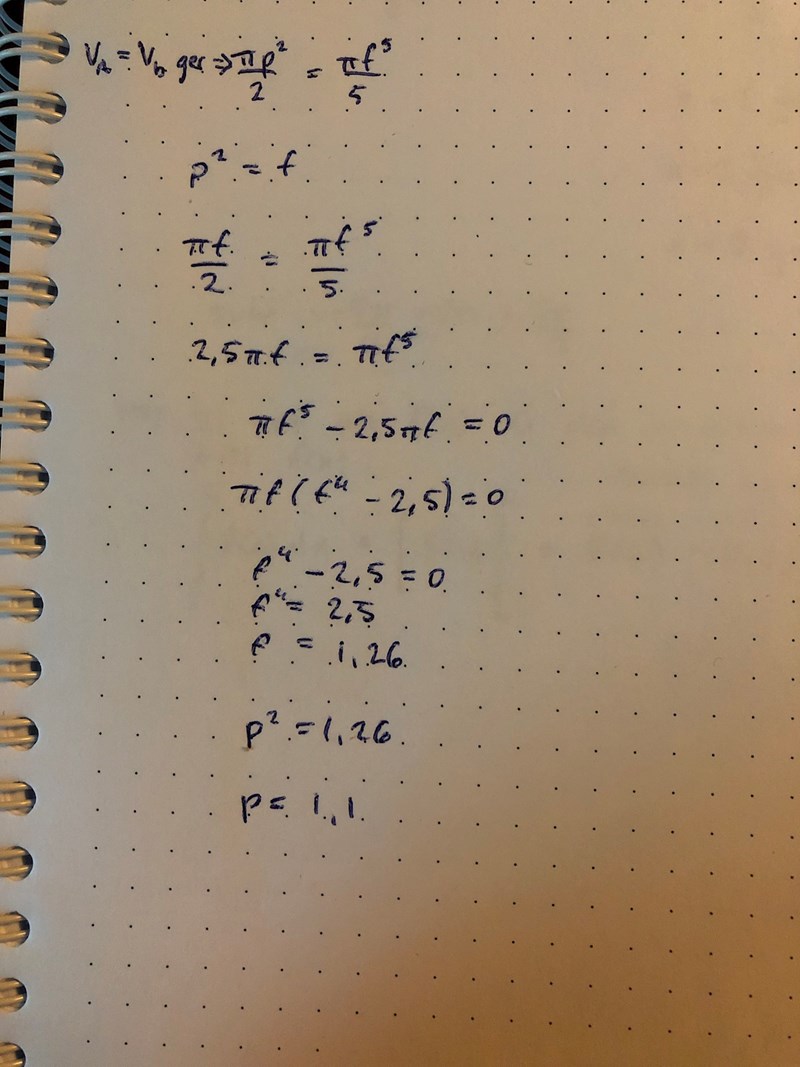 V_A = V_b ger ⇒ πp²/2 = πf⁵/5
p² = f
πf/2 = πf⁵/5
2,5πf = πf⁵
πf⁵ - 2,5πf = 0
πf(f⁴ - 2,5) = 0
f⁴ - 2,5 = 0
f⁴ = 2,5
f = 1,26
p² = 1,26
p = 1,1